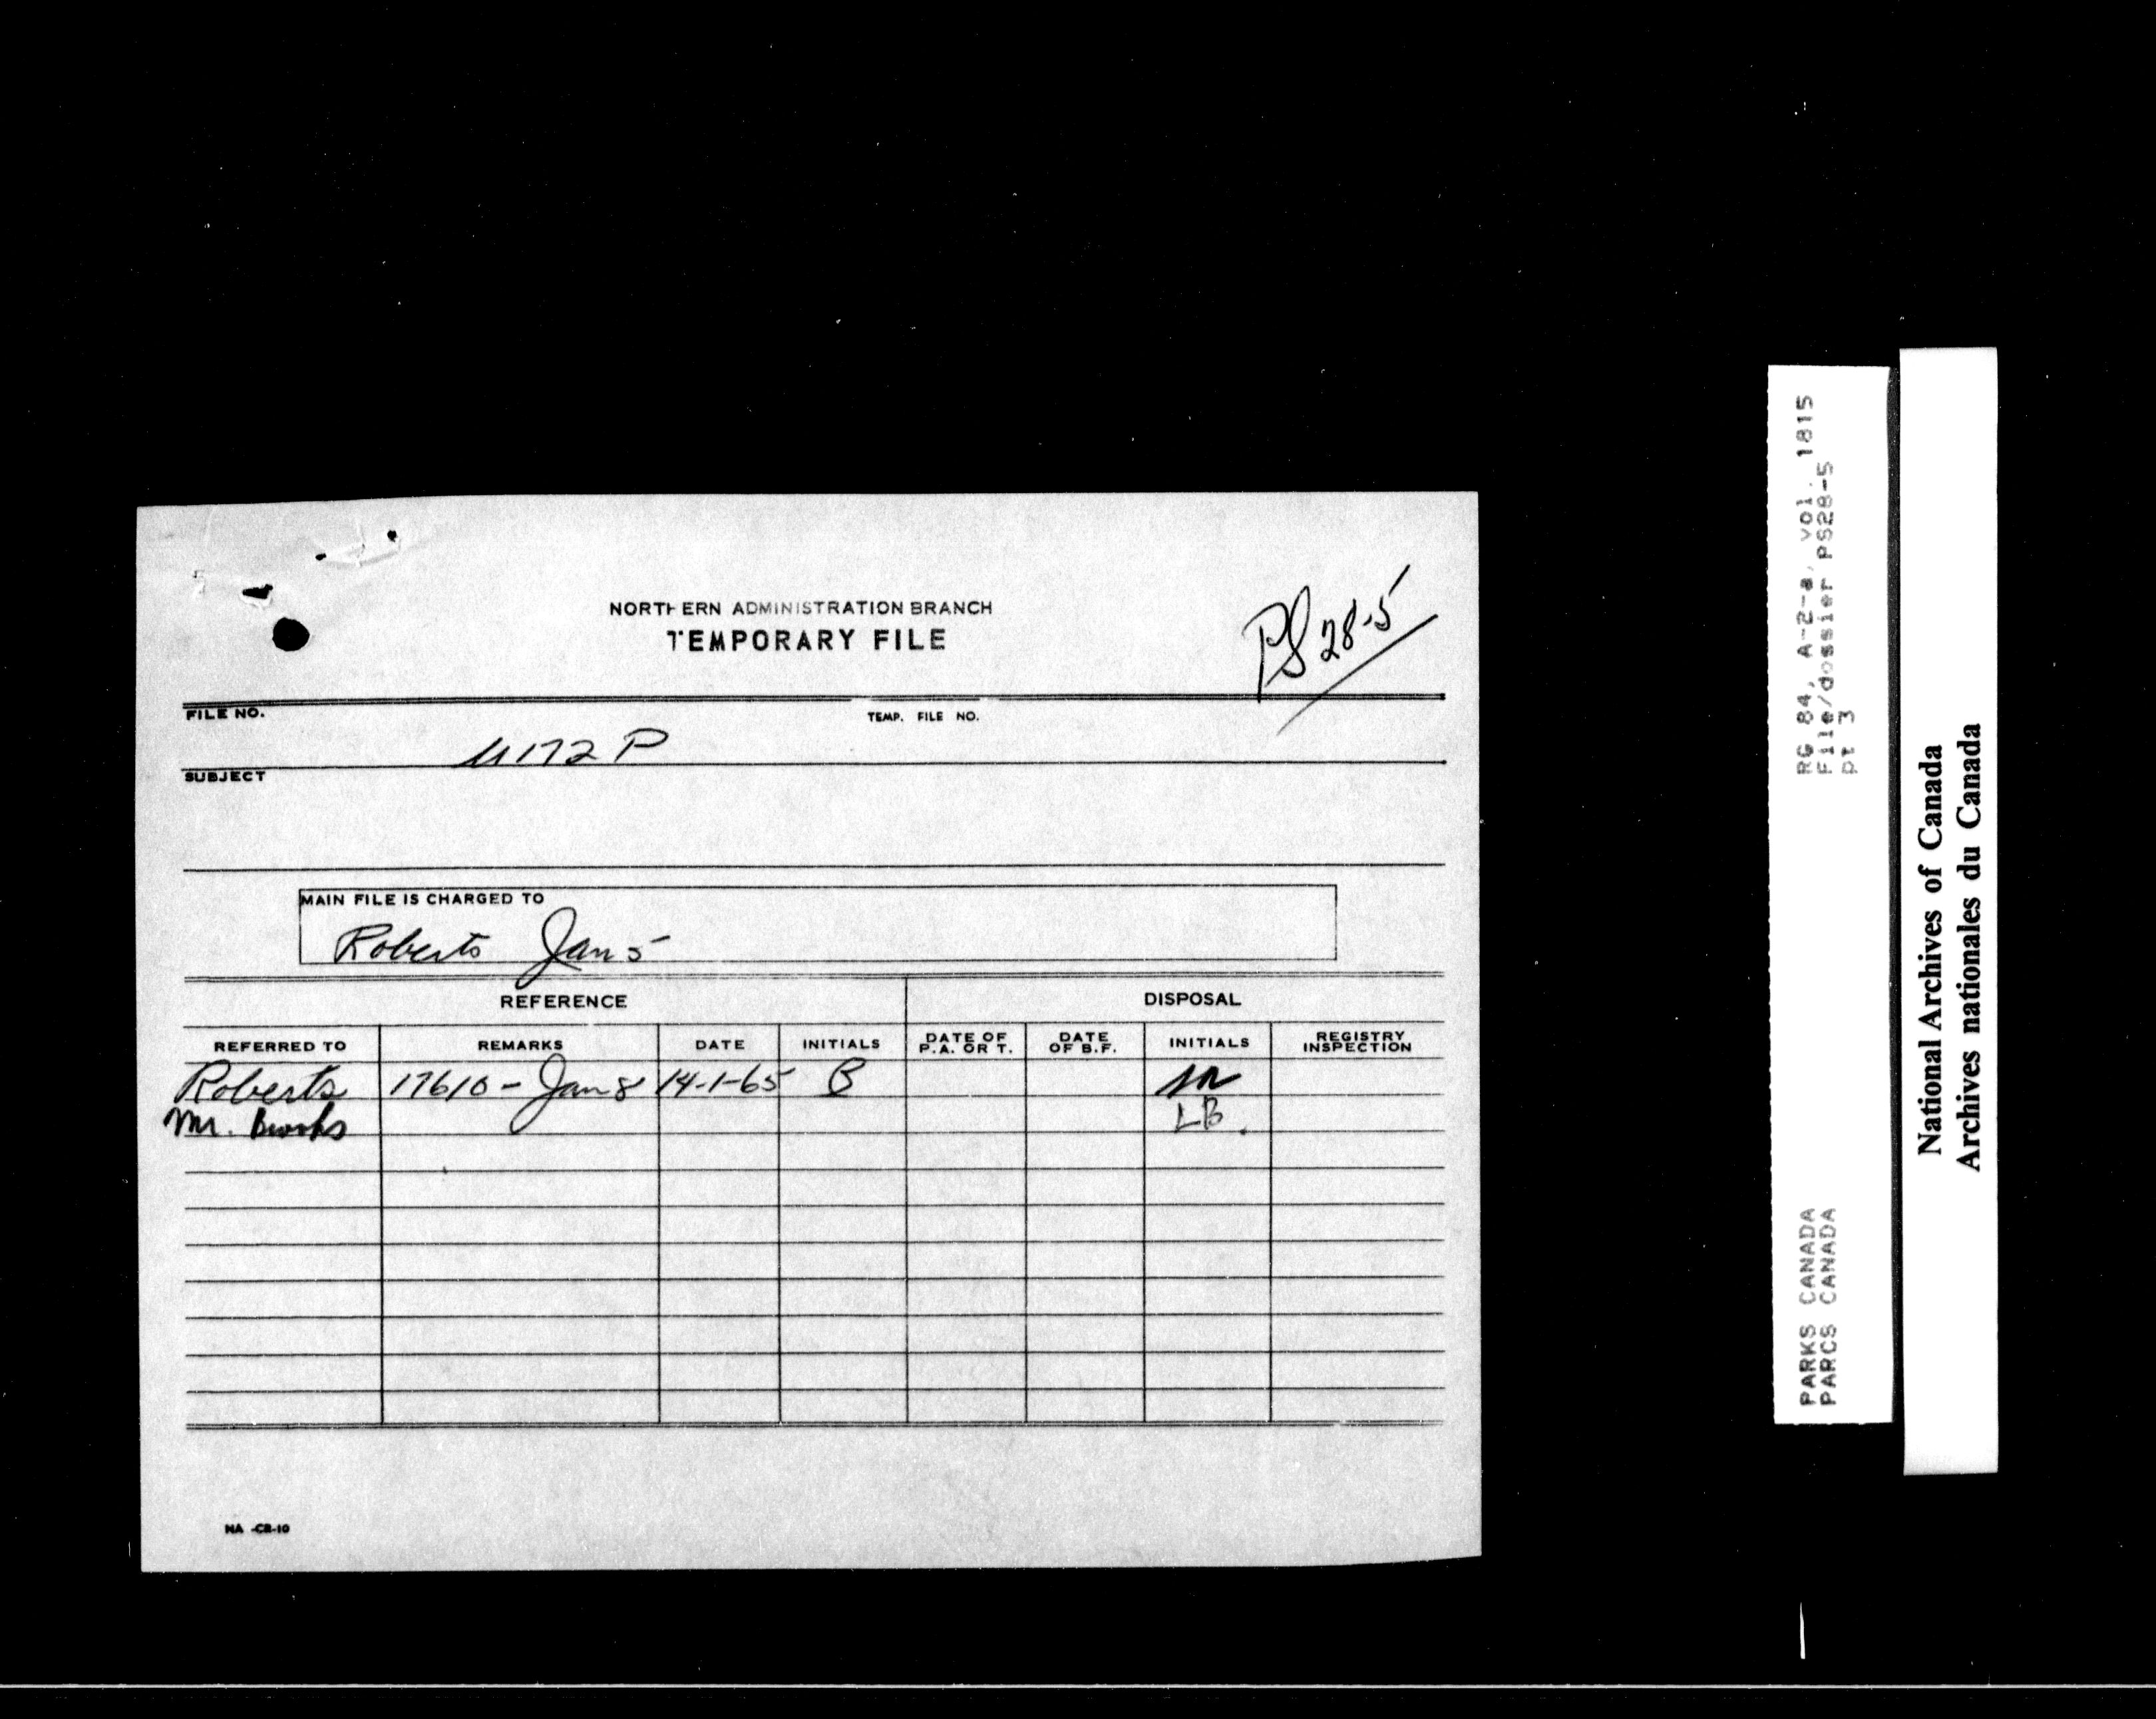 NORTHERN ADMINISTRATION BRANCH
TEMPORARY FILE
PS 28-5
FILE NO.
TEMP. FILE NO.
U172 P
SUBJECT
MAIN FILE IS CHARGED TO
Roberts Jan 5
REFERENCE DISPOSAL
REFERRED TO REMARKS DATE INITIALS DATE OF P.A. OR T. DATE OF B.F. INITIALS REGISTRY INSPECTION
Roberts 17610 - Jan 8 14-1-65 B
Mr. Brooks LB.
NA -CB-10
RG 84, A-2-a, vol. 1815
File/dossier PS28-5
pt 3
PARKS CANADA
PARCS CANADA
National Archives of Canada
Archives nationales du Canada